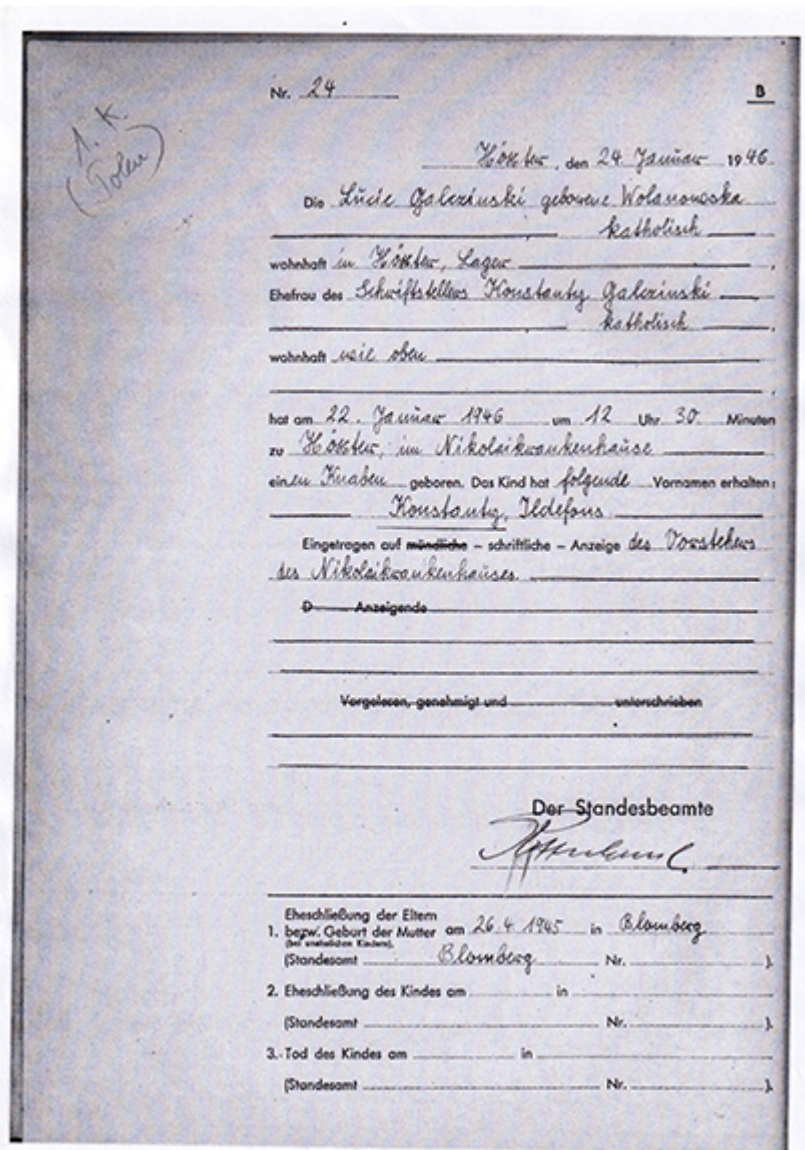 Nr. 24
B
1. K.
(Polen)
Höxter, den 24 Januar 1946.
Die Lucie Galezinski geborene Wolanowska
katholisch
wohnhaft in Höxter, Lager
Ehefrau des Schriftstellers Konstanty Galezinski
katholisch
wohnhaft wie oben
hat am 22. Januar 1946 um 12 Uhr 30 Minuten
zu Höxter, im Nikolaikrankenhause
einen Knaben geboren. Das Kind hat folgende Vornamen erhalten:
Konstanty, Ildefons
Eingetragen auf mündliche – schriftliche – Anzeige des Vorstehers
des Nikolaikrankenhauses.
D Anzeigende
Vorgelesen, genehmigt und unterschrieben
Der Standesbeamte
Eheschließung der Eltern
1. bezw. Geburt der Mutter am 26.4.1945 in Blomberg
(bei unehelichen Kindern).
(Standesamt Blomberg Nr. ).
2. Eheschließung des Kindes am in
(Standesamt Nr. ).
3. Tod des Kindes am in
(Standesamt Nr. ).